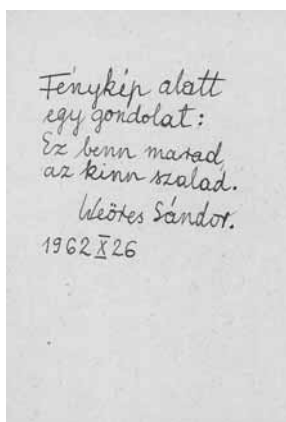 Fénykép alatt
egy gondolat:
Ez benn marad,
az kinn szalad.
Weöres Sándor.
1962 X 26